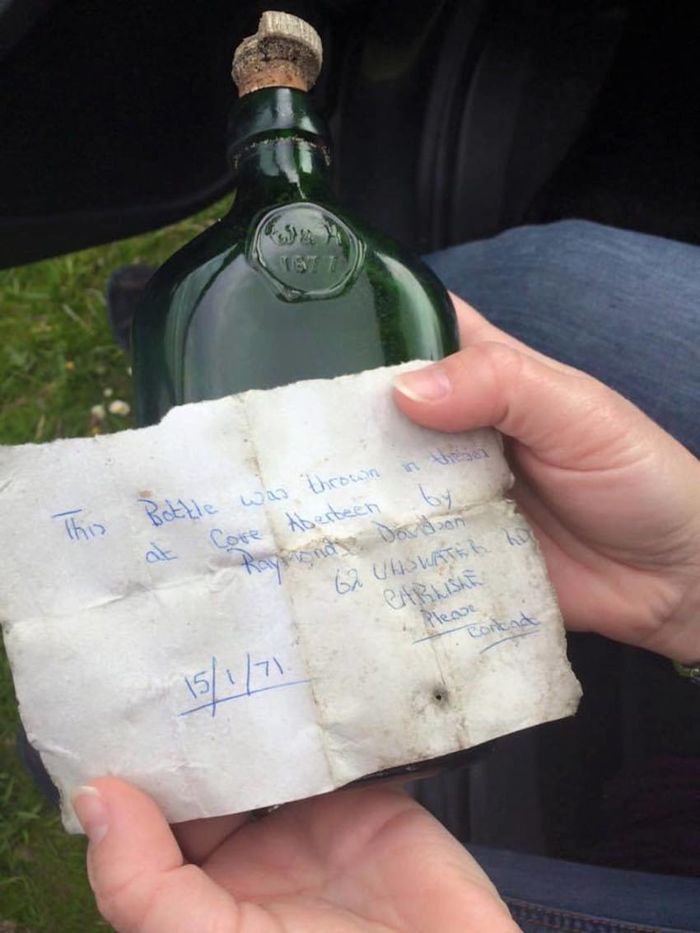 W & H
1877
This Bottle was thrown in the sea
at Cove Aberdeen by
Raymond Davidson
62 ULLSWATER RD
CARLISLE
Please
contact
15/1/71